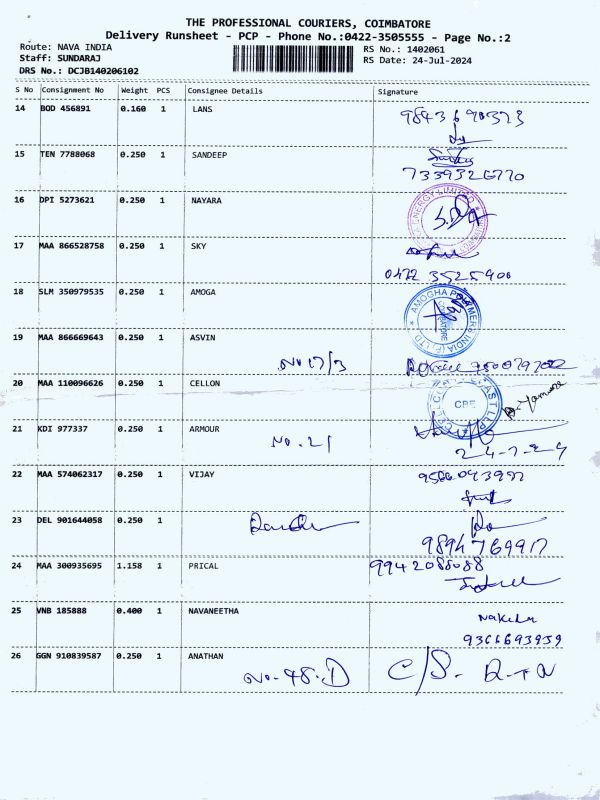 THE PROFESSIONAL COURIERS, COIMBATORE
Delivery Runsheet - PCP - Phone No.:0422-3505555 - Page No.:2
Route: NAVA INDIA
RS No.: 1402061
Staff: SUNDARAJ
RS Date: 24-Jul-2024
DRS No.: DCJB140206102
S No Consignment No Weight PCS Consignee Details Signature
14 BOD 456891 0.160 1 LANS
15 TEN 7788068 0.250 1 SANDEEP
7339326770
16 DPI 5273621 0.250 1 NAYARA
ENERGY LIMITED
17 MAA 866528758 0.250 1 SKY
0422 3525900
18 SLM 350979535 0.250 1 AMOGA
AMOGHA POLYMERS INDIA (P) LTD
COIMBATORE
19 MAA 866669643 0.250 1 ASVIN
No 17/3
20 MAA 110096626 0.250 1 CELLON
CPE
21 KDI 977337 0.250 1 ARMOUR
No. 21
24-7-24
22 MAA 574062317 0.250 1 VIJAY
23 DEL 901644058 0.250 1
9894769917
24 MAA 300935695 1.158 1 PRICAL
9942088088
25 VNB 185888 0.400 1 NAVANEETHA
9366693939
26 GGN 910839587 0.250 1 ANATHAN
No-48.D C/S.